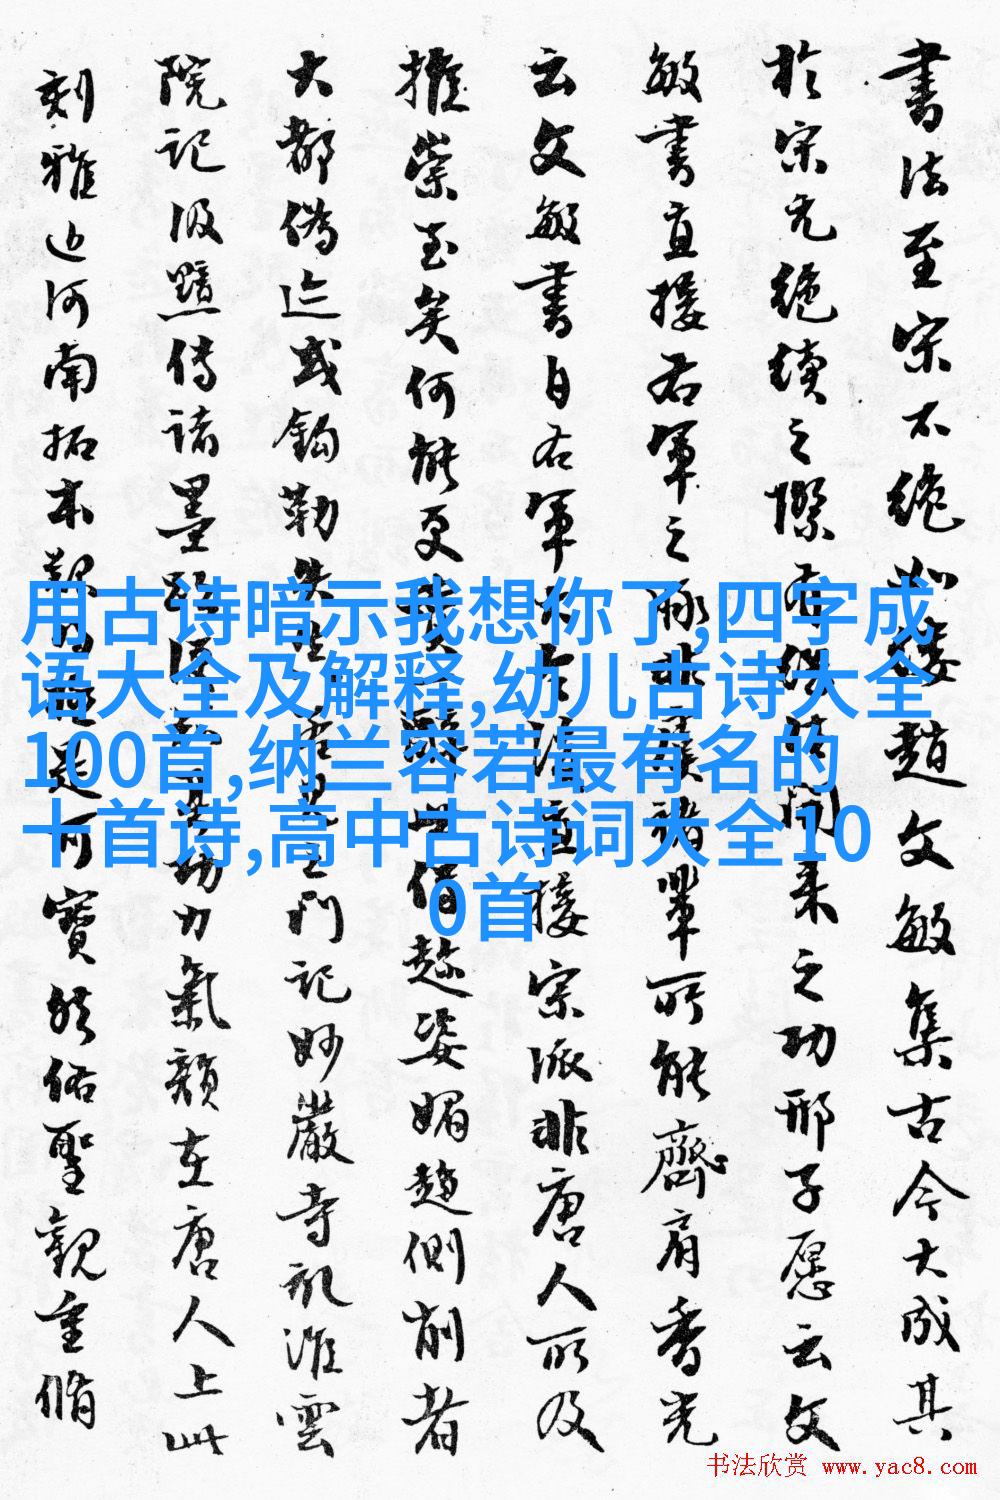 書法至宋不絕如縷趙文敏集古今大成其
於宋元絕續之際有間来之功邢子愿云文
敏書直接右軍之脉非褚輩所能齊肩香光
云文敏書曰右軍直接宗派非唐人所及
推崇至矣何能更世俗趁姿媚趙側削者
大都偽迹或鈎勒失門記妙嚴寺記淮雲
院記汲黯傳諸墨功力氣韻在唐人上此
刻雅近河南拓本是可寶然俗聖觀重脩
用古诗暗示我想你了,四字成
语大全及解释,幼儿古诗大全
100首,纳兰容若最有名的
十首诗,高中古诗词大全10
0首
书法欣赏 www.yac8.com